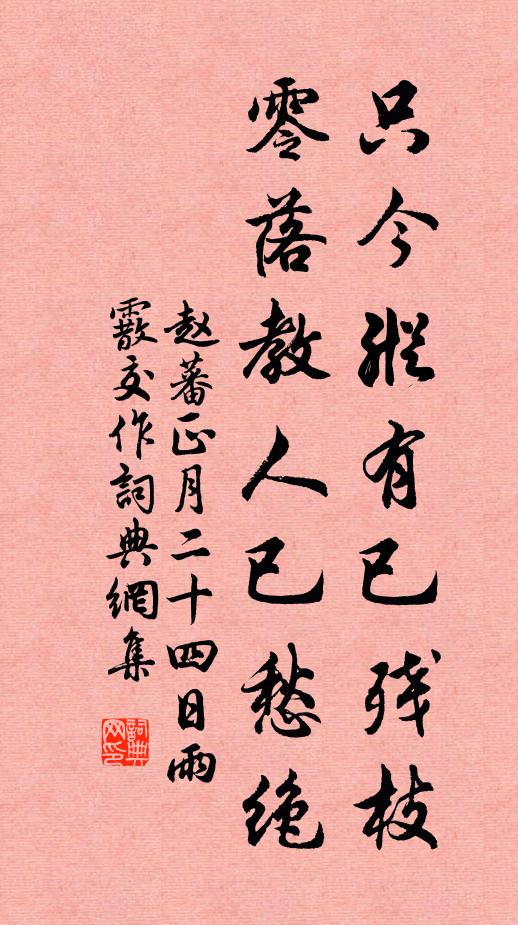 只今縱有已残枝
零落教人已愁绝
赵蕃正月二十四日雨
霰交作詞典網集
詞典网印